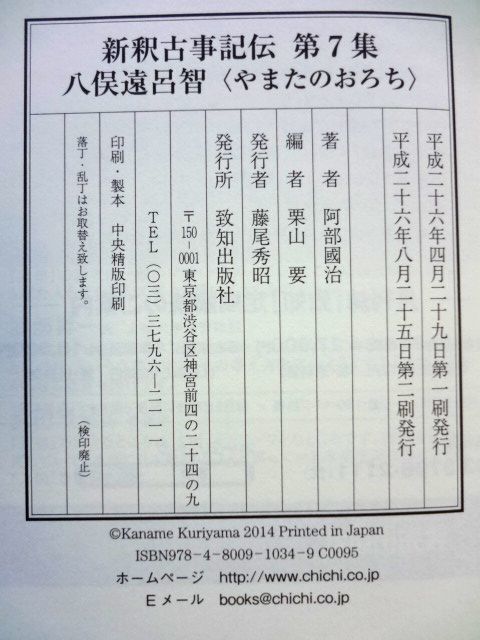 新釈古事記伝 第7集
八俣遠呂智〈やまたのおろち〉
平成二十六年四月二十九日第一刷発行
平成二十六年八月二十五日第二刷発行
著者 阿部國治
編者 栗山 要
発行者 藤尾秀昭
発行所 致知出版社
〒150-0001 東京都渋谷区神宮前四の二十四の九
TEL(〇三)三七九六―二一一一
印刷・製本 中央精版印刷
落丁・乱丁はお取替え致します。 (検印廃止)
©Kaname Kuriyama 2014 Printed in Japan
ISBN978-4-8009-1034-9 C0095
ホームページ http://www.chichi.co.jp
Eメール books@chichi.co.jp